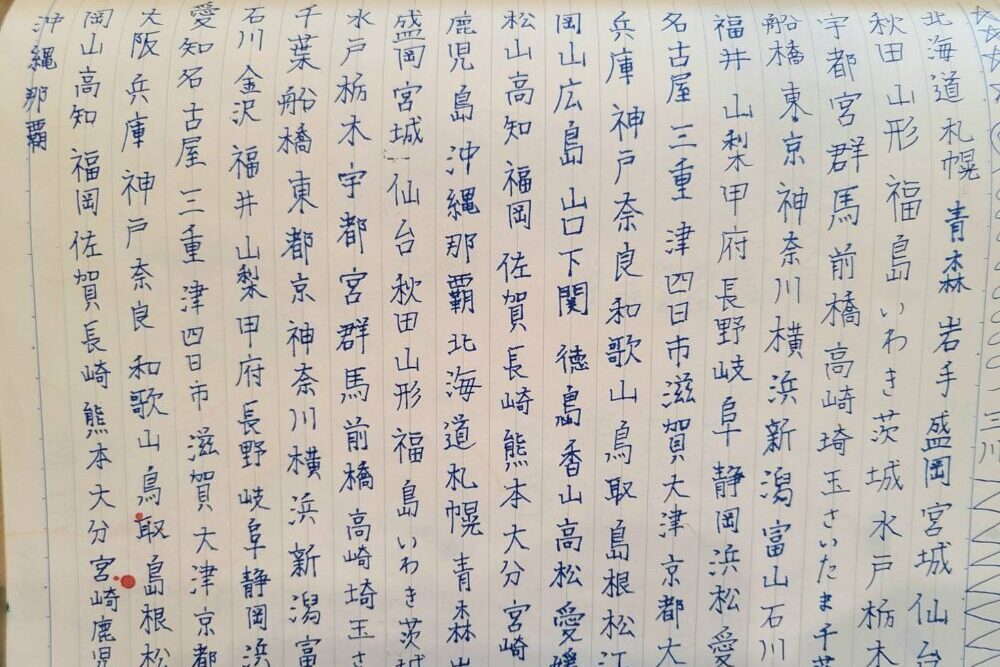 三川
北海道札幌 青森 岩手盛岡宮城仙台
秋田山形福島いわき茨城水戸栃木
宇都宮群馬前橋高崎埼玉さいたま千葉
船橋東京神奈川横浜新潟富山石川
福井山梨甲府長野岐阜静岡浜松愛
名古屋三重津四日市滋賀大津京都大
兵庫神戸奈良和歌山鳥取島根松江
岡山広島山口下関徳島香山高松愛媛
松山高知福岡佐賀長崎熊本大分宮崎
鹿児島沖縄那覇北海道札幌青森
盛岡宮城仙台秋田山形福島いわき茨城
水戸栃木宇都宮群馬前橋高崎埼玉さ
千葉船橋東都京神奈川横浜新潟富
石川金沢福井山梨甲府長野岐阜静岡浜
愛知名古屋三重津四日市滋賀大津京都
大阪兵庫神戸奈良和歌山鳥取島根松
岡山高知福岡佐賀長崎熊本大分宮崎鹿児
沖縄那覇